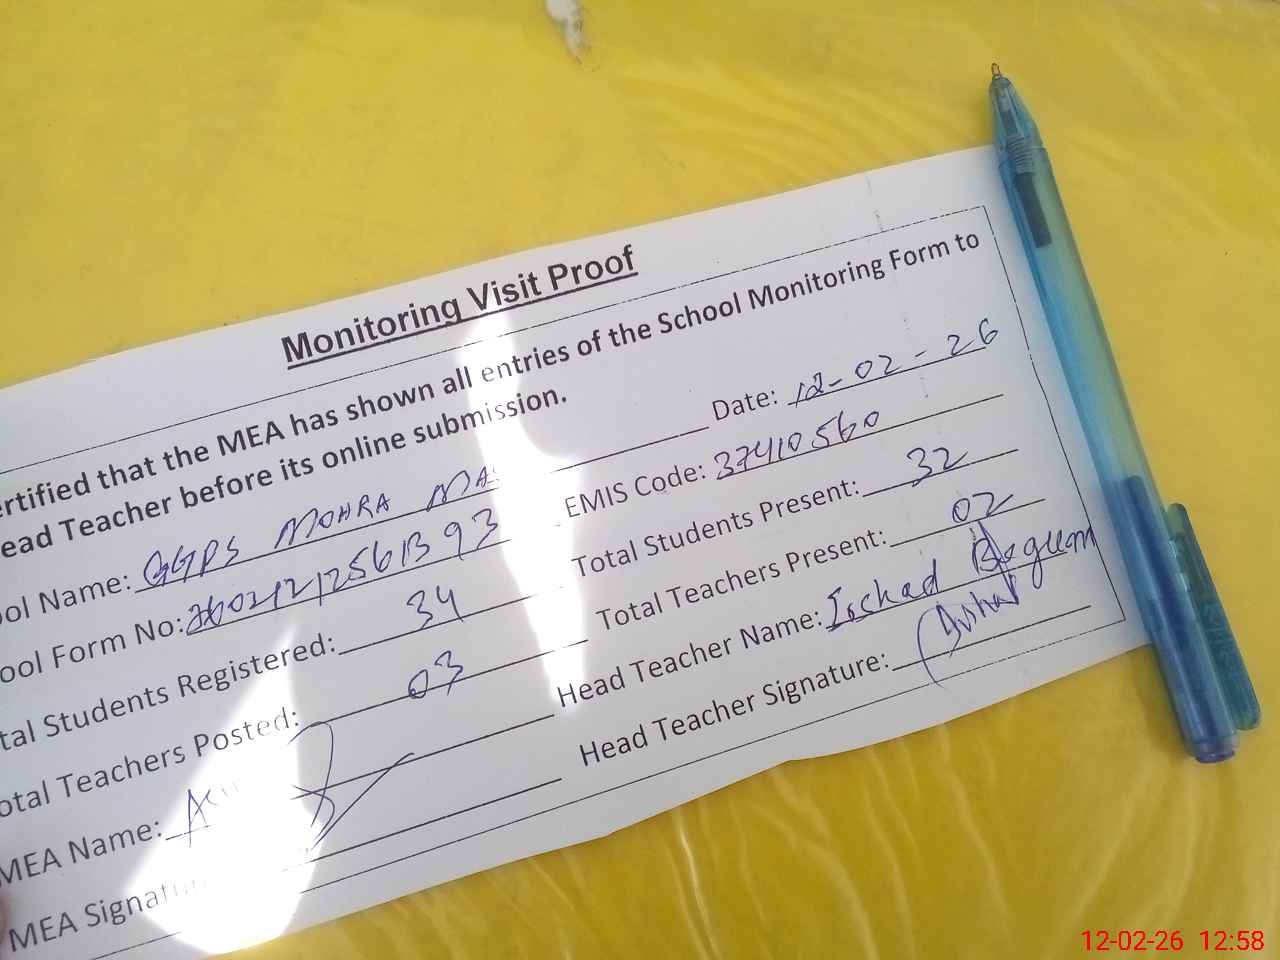 Monitoring Visit Proof
ertified that the MEA has shown all entries of the School Monitoring Form to
ead Teacher before its online submission.
ool Name: GGPS MOHRA Date: 12-02-26
ool Form No: EMIS Code: 37410560
tal Students Registered: 34 Total Students Present: 32
otal Teachers Posted: 03 Total Teachers Present: 02
MEA Name: Head Teacher Name: Irshad Begum
MEA Signatur Head Teacher Signature:
12-02-26 12:58